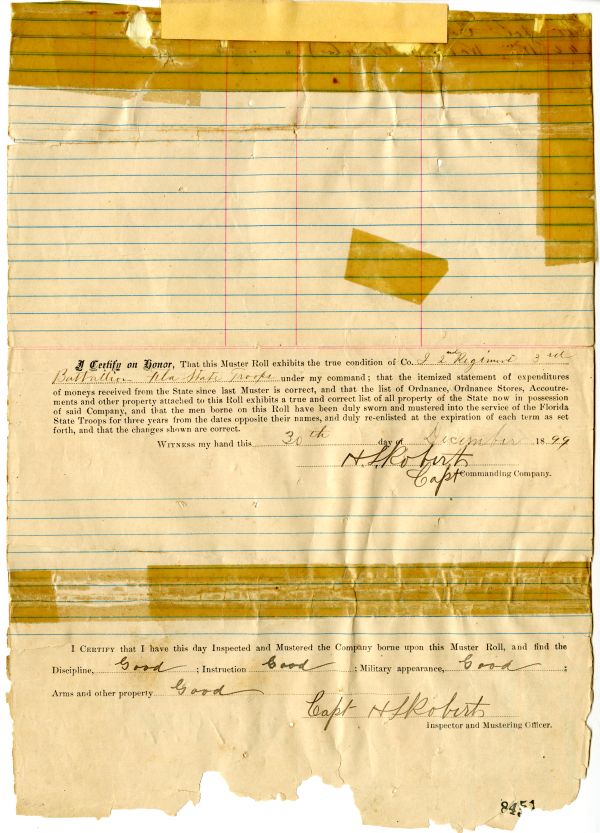 I Certify on Honor, That this Muster Roll exhibits the true condition of Co. I 2nd Regiment 3rd
Battallion Fla State Troops under my command; that the itemized statement of expenditures
of moneys received from the State since last Muster is correct, and that the list of Ordnance, Ordnance Stores, Accoutre-
ments and other property attached to this Roll exhibits a true and correct list of all property of the State now in possession
of said Company, and that the men borne on this Roll have been duly sworn and mustered into the service of the Florida
State Troops for three years from the dates opposite their names, and duly re-enlisted at the expiration of each term as set
forth, and that the changes shown are correct.
Witness my hand this 30th day of December 1899
H S Roberts
Capt Commanding Company.
I Certify that I have this day Inspected and Mustered the Company borne upon this Muster Roll, and find the
Discipline, Good ; Instruction Good ; Military appearance, Good ;
Arms and other property Good
Capt H S Roberts
Inspector and Mustering Officer.
8451